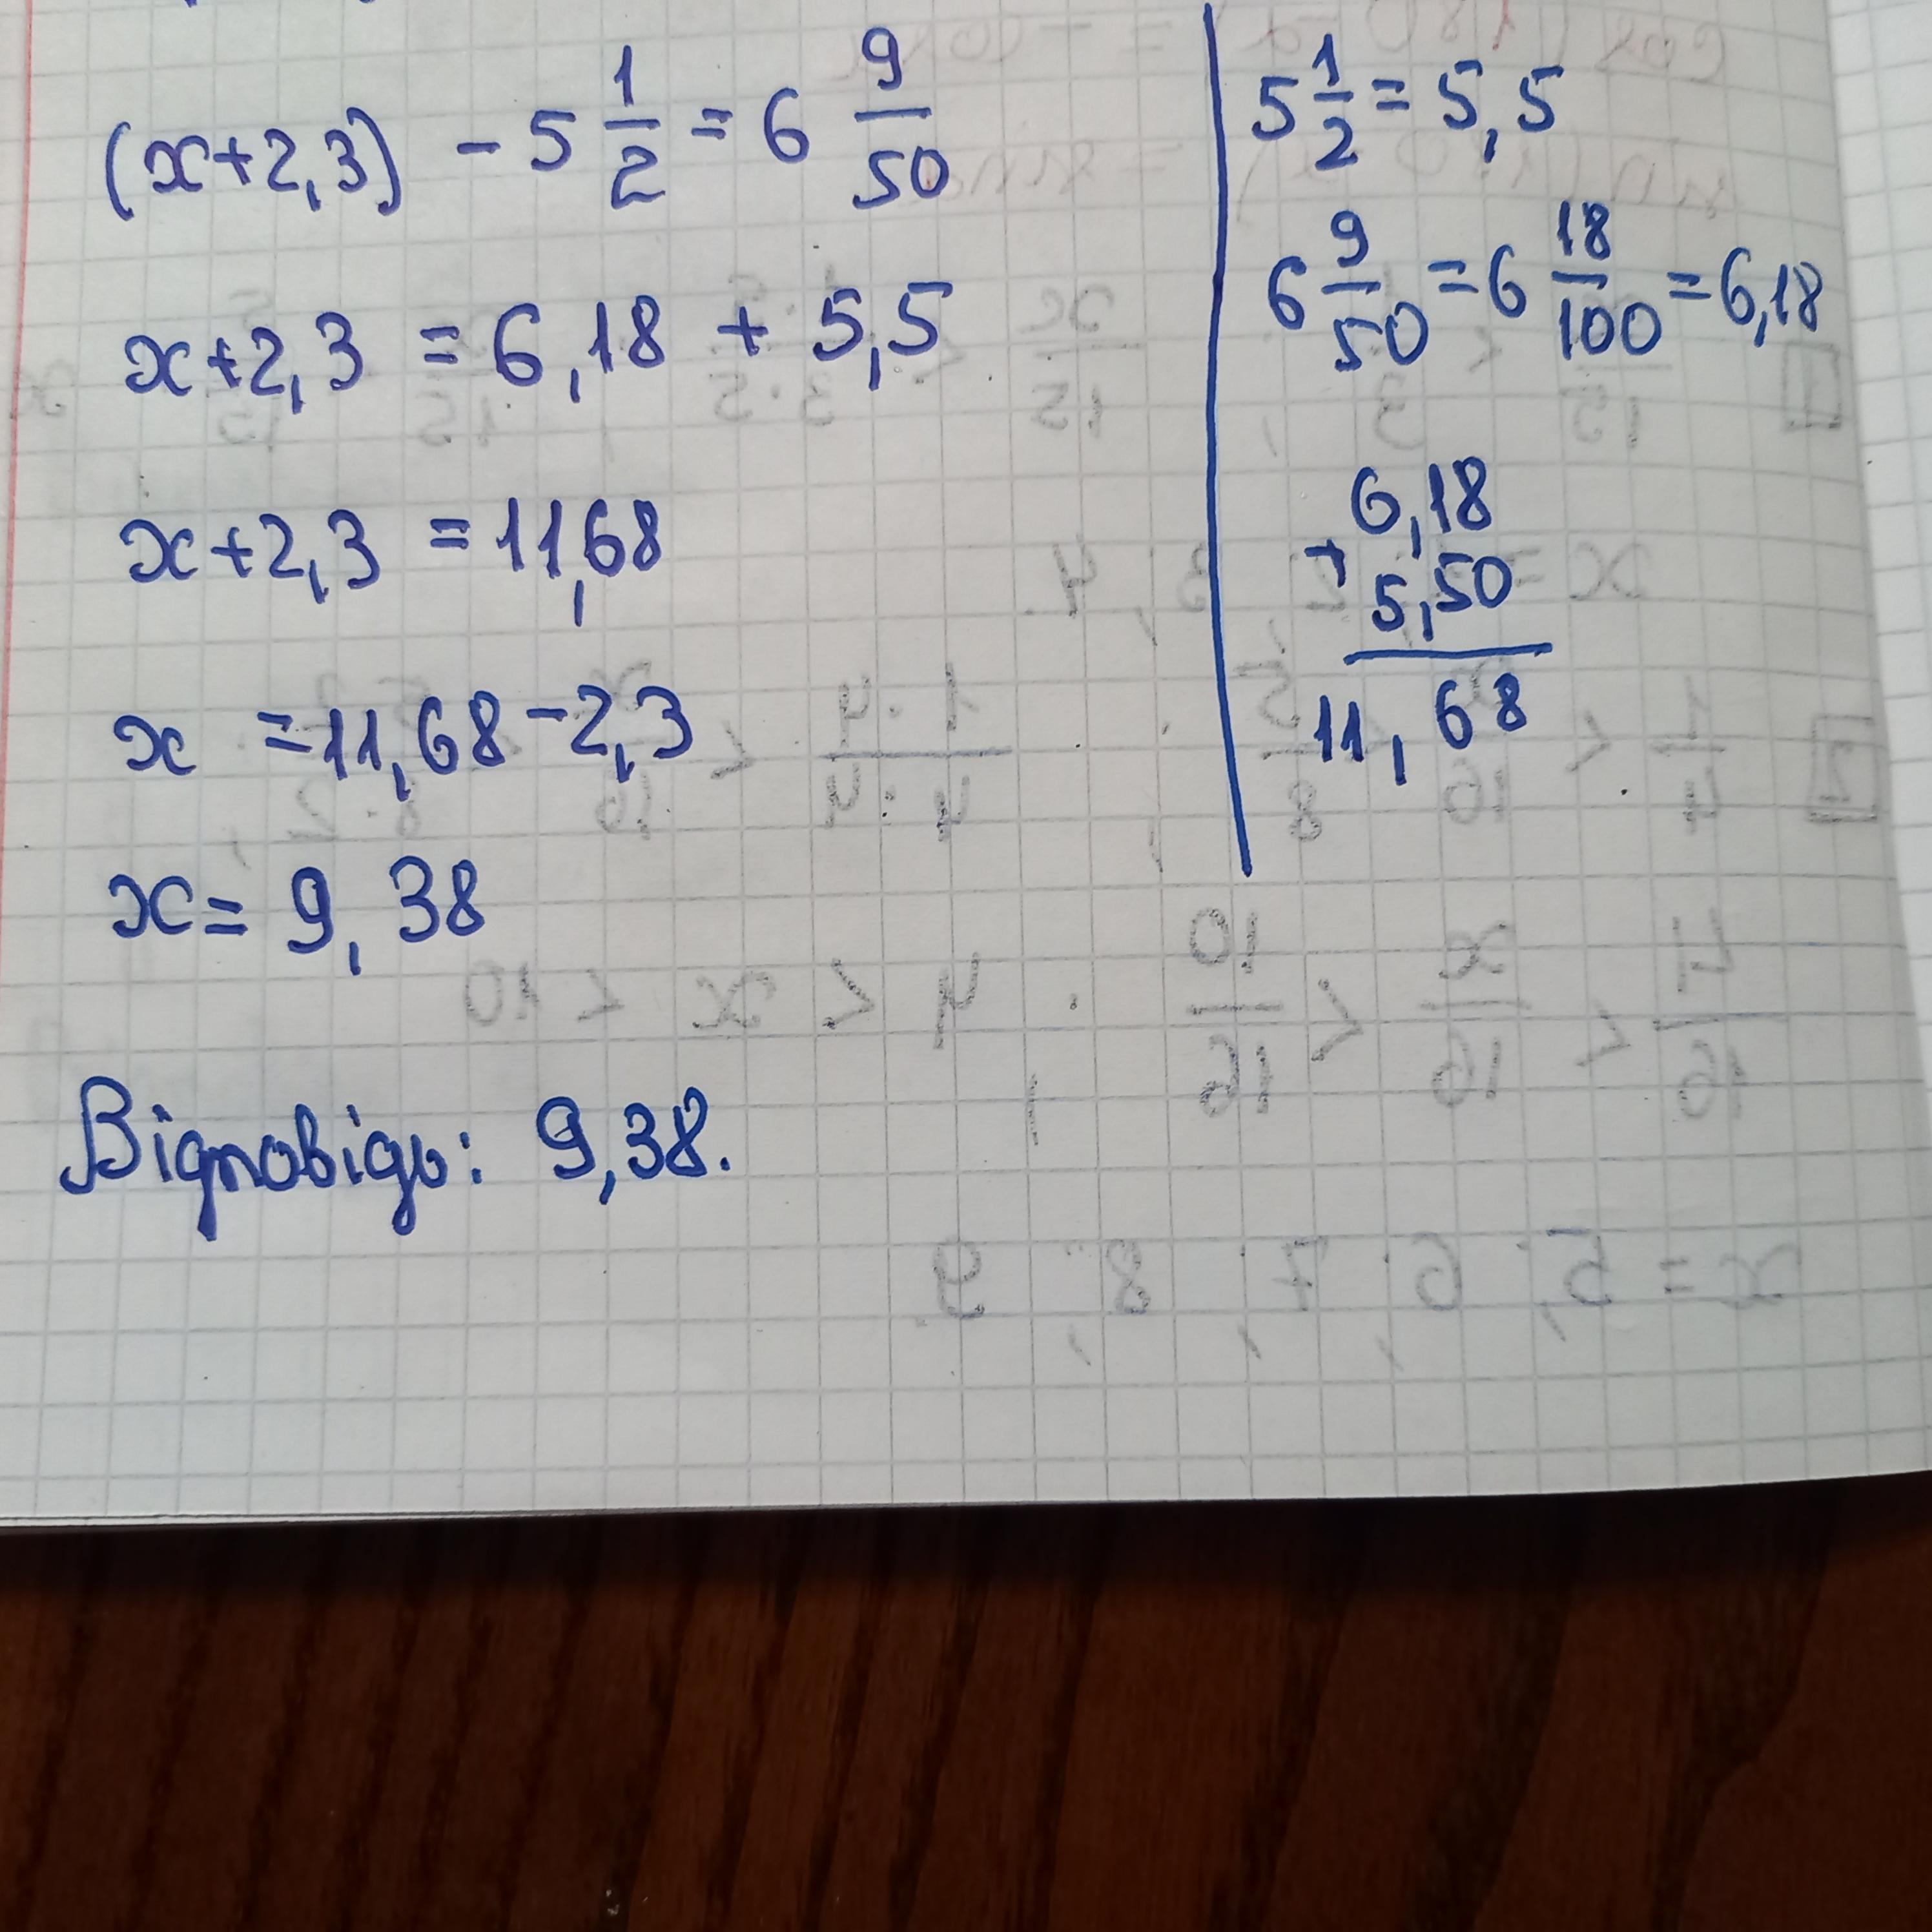 (x+2,3) - 5 1/2 = 6 9/50
x+2,3 = 6,18 + 5,5
x+2,3 = 11,68
x = 11,68 - 2,3
x = 9,38
Відповідь: 9,38.
5 1/2 = 5,5
6 9/50 = 6 18/100 = 6,18
6,18
+
5,50
11,68